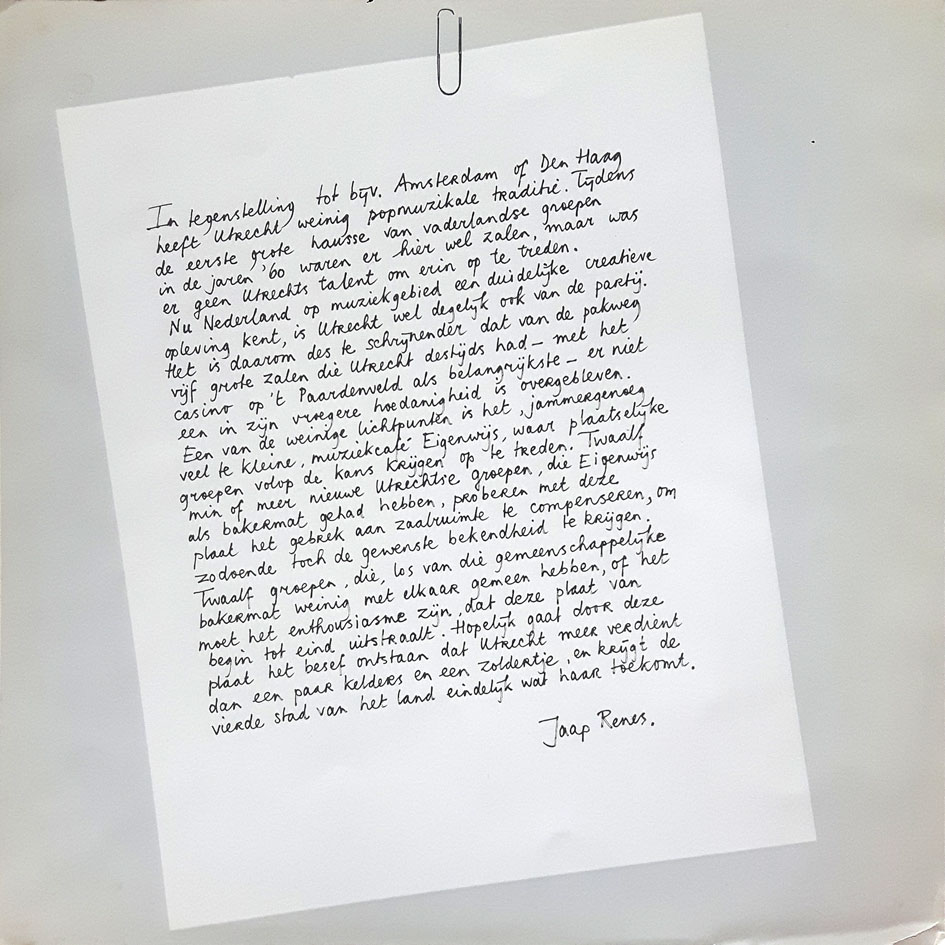 In tegenstelling tot bijv. Amsterdam of Den Haag
heeft Utrecht weinig popmuzikale traditie. Tijdens
de eerste grote hausse van vaderlandse groepen
in de jaren '60 waren er hier wel zalen, maar was
er geen Utrechts talent om erin op te treden.
Nu Nederland op muziekgebied een duidelijke creatieve
opleving kent, is Utrecht wel degelijk ook van de partij.
Het is daarom des te schrijnender dat van de pakweg
vijf grote zalen die Utrecht destijds had – met het
casino op 't Paardenveld als belangrijkste – er niet
een in zijn vroegere hoedanigheid is overgebleven.
Een van de weinige lichtpunten is het, jammergenoeg
veel te kleine, muziekcafé Eigenwijs, waar plaatselijke
groepen volop de kans krijgen op te treden. Twaalf
min of meer nieuwe Utrechtse groepen, die Eigenwijs
als bakermat gehad hebben, proberen met deze
plaat het gebrek aan zaalruimte te compenseren, om
zodoende toch de gewenste bekendheid te krijgen.
Twaalf groepen, die, los van die gemeenschappelijke
bakermat weinig met elkaar gemeen hebben, of het
moet het enthousiasme zijn, dat deze plaat van
begin tot eind uitstraalt. Hopelijk gaat door deze
plaat het besef ontstaan dat Utrecht meer verdient
dan een paar kelders en een zoldertje, en krijgt de
vierde stad van het land eindelijk wat haar toekomt.
Jaap Renes.